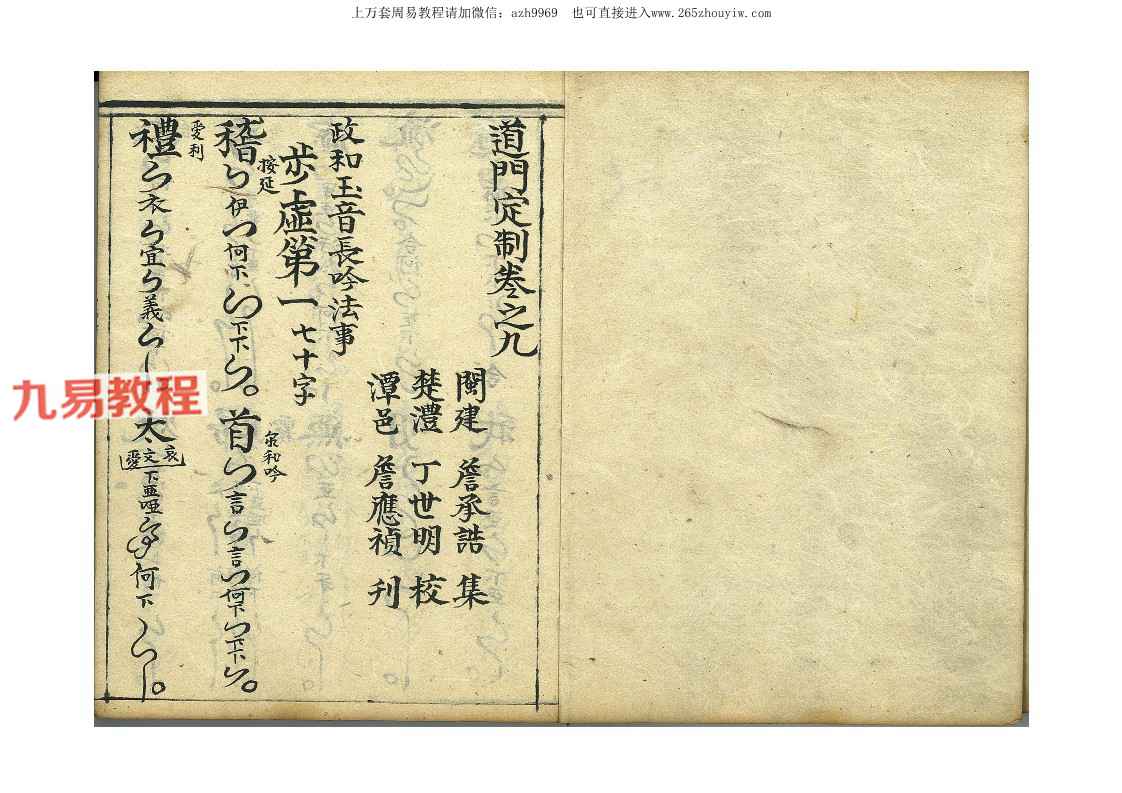 上万套周易教程请加微信：azh9969 也可直接进入www.265zhouyiw.com
道門定制卷之九
閩建 詹承誥 集
楚澧 丁世明 校
潭邑 詹應禎 刊
政和玉音長吟法事
步虛第一 七十字
接延
稽 伊 何下 下下
首 言 言 何下 下下
愛利
禮 衣 宜 義
太 哀文愛 下亜啞 何下
九易教程